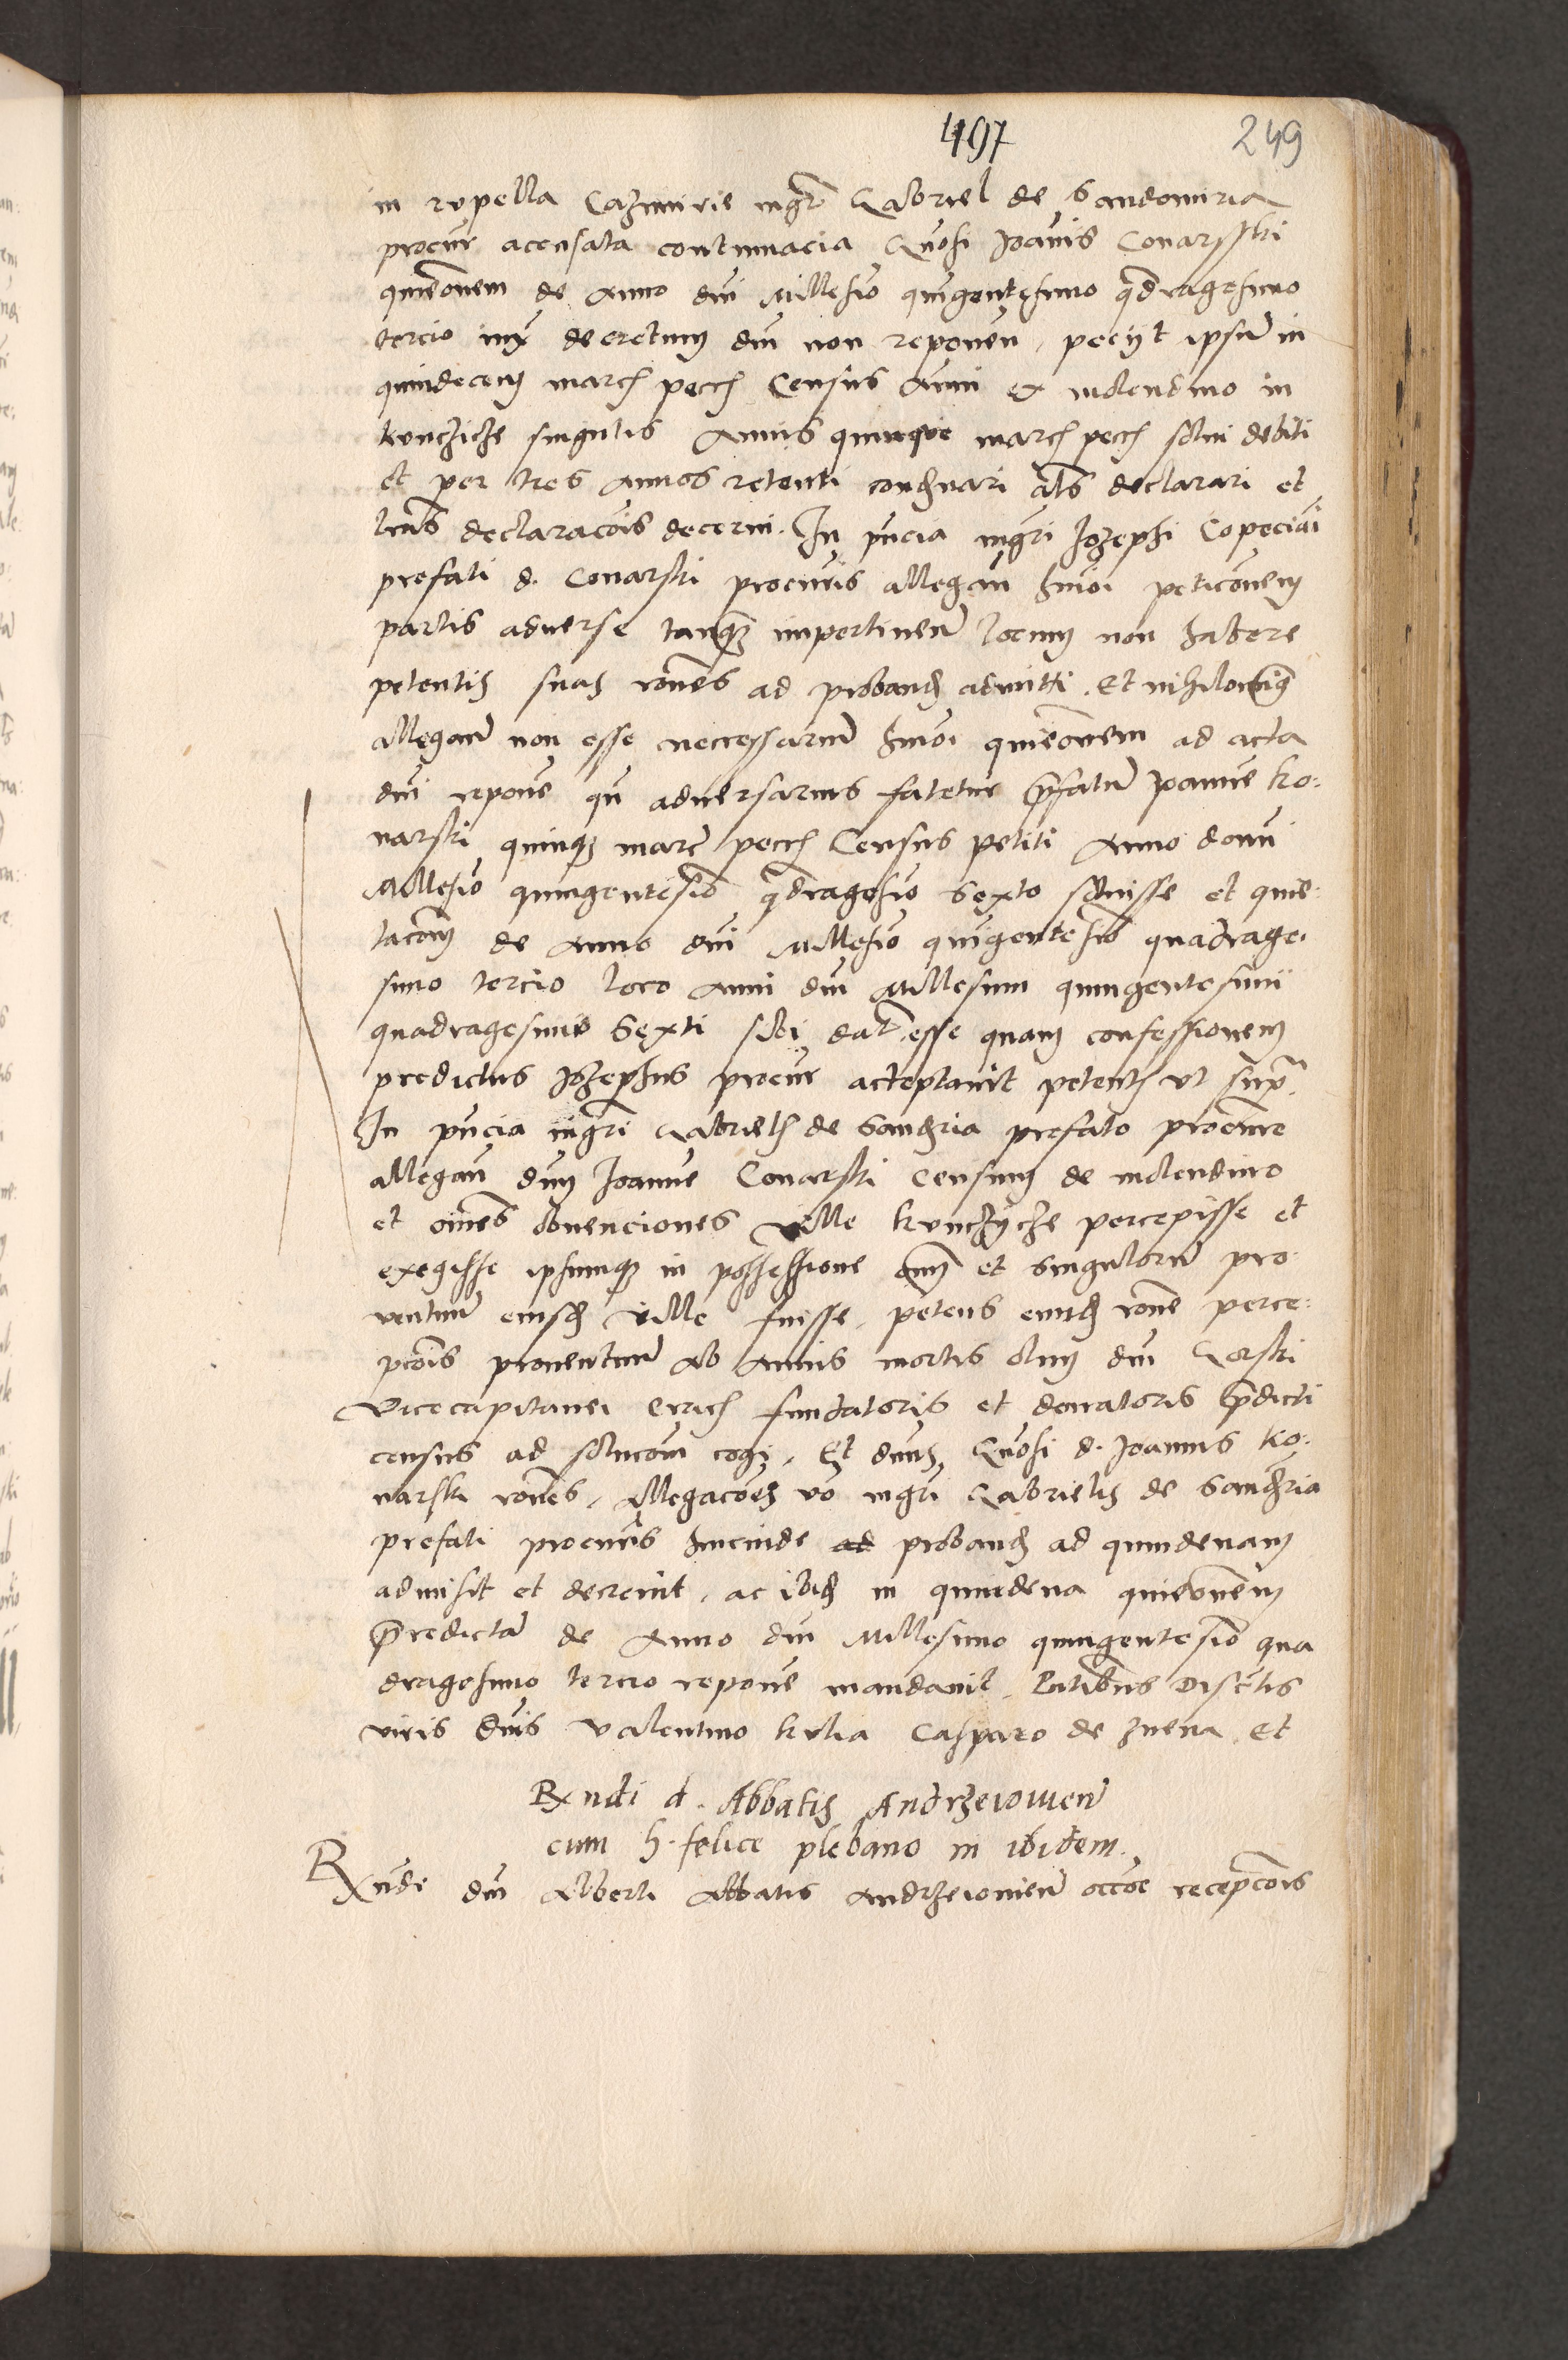 497 249
in rupella Cazimirie mgr Gabriel de Sandomiria
procur acusata contumacia Gnosi Joannis Conarsski
quietonem de Anno dni Millesio quigentesimo qdragesimo
tercio iux decretum dni non reponen, peciit ipsum in
quindecem march pecch Census Anni ex molendino in
kunchicze singulis Annis quinque march pecch solui debiti
et per tres annos retenti condemnari als declarari et
lras declaracois decerni. In pncia mgri Jozephi Copeciai
prefati d. Conarski procuris allegan hmoi peticonem
partis adverse tanq impertinen locum non habere
petentis suas rones ad proband admitti. Et nihilominus
allegan non esse necessariu hmoi quietonem ad acta
dni repone qn adversarius fatetur prefatu Joanne ko:
narski quinq marc pecch Census petiti Anno domi
Millesio quingentesio qdragesio Sexto soluisse et quie:
tacom de Anno dni Millesio quigentesio quadrage:
simo tercio loco Anni dni Millesimi quingentesimi
quadragesimi Sexti sibi dat esse quam confessionem
predictus Jozephus procur acceptavit petent ut supra.
In pncia mgri Gabrielis de Sandria prefato procure
allegan dnm Joanne Conarski censum de molendino
et omnes obvenciones ville kunchycze percepisse et
exegisse ipsumq in possessione omn et singuloru pro:
ventuu eiusd ville fuisse, petens eund rone perce:
pcois proventuum ab annis mortis olim dni Gorski
vicecapitanei fundatoris et donatoris predicti
census ad solucom cogi. Et dnus Gnosi d. Joannis ko:
narski rones, allegacoes vo mgri Gabrielis de Sandria
prefati procuris hincinde ad proband ad quindenam
admisit et decrevit, ac ibid in quindena quietonem
predicta de Anno dni Millesimo quingentesio qua
dragesimo tercio repone mandavit. Pntibus Discretis
viris dnis Valentino kulia Casparo de znena et
Rxndi d. Abbatis Andrzeiowien
cum h. felice plebano in ibidem.
Rxndi dni Alberti Abbatis Andrzeiowien occoe recepcois